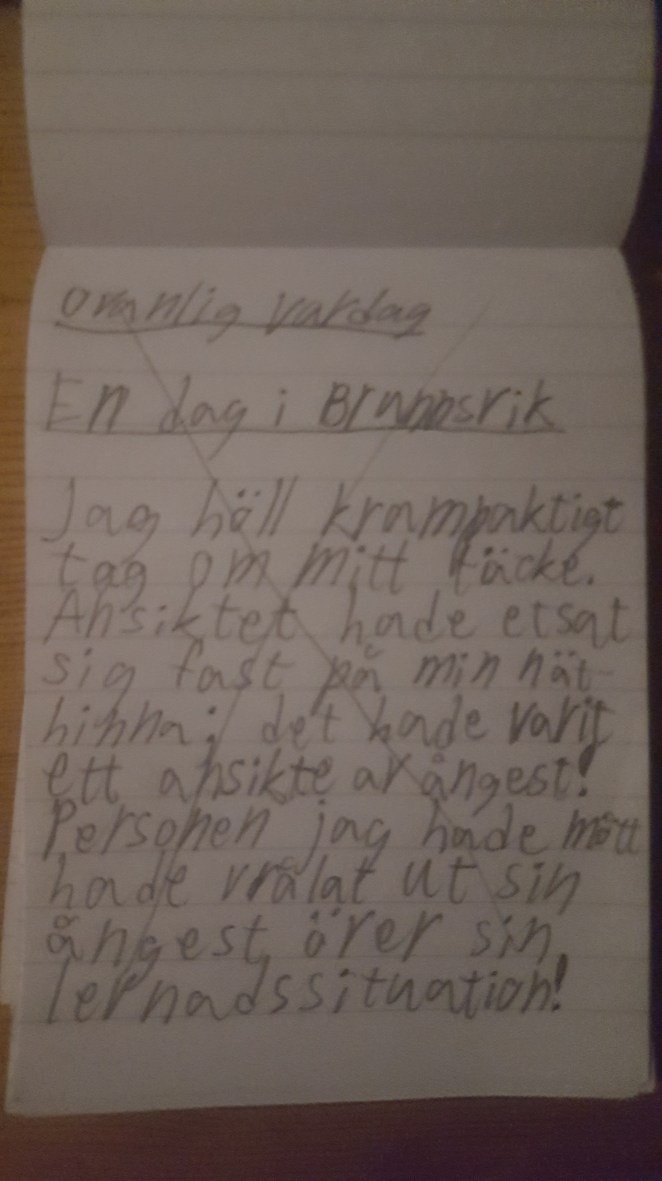 Ovanlig vardag
En dag i Brunnsvik
Jag höll krampaktigt
tag om mitt täcke.
Ansiktet hade etsat
sig fast på min nät-
hinna; det hade varit
ett ansikte av ångest!
Personen jag hade mött
hade vrålat ut sin
ångest över sin
levnadssituation!